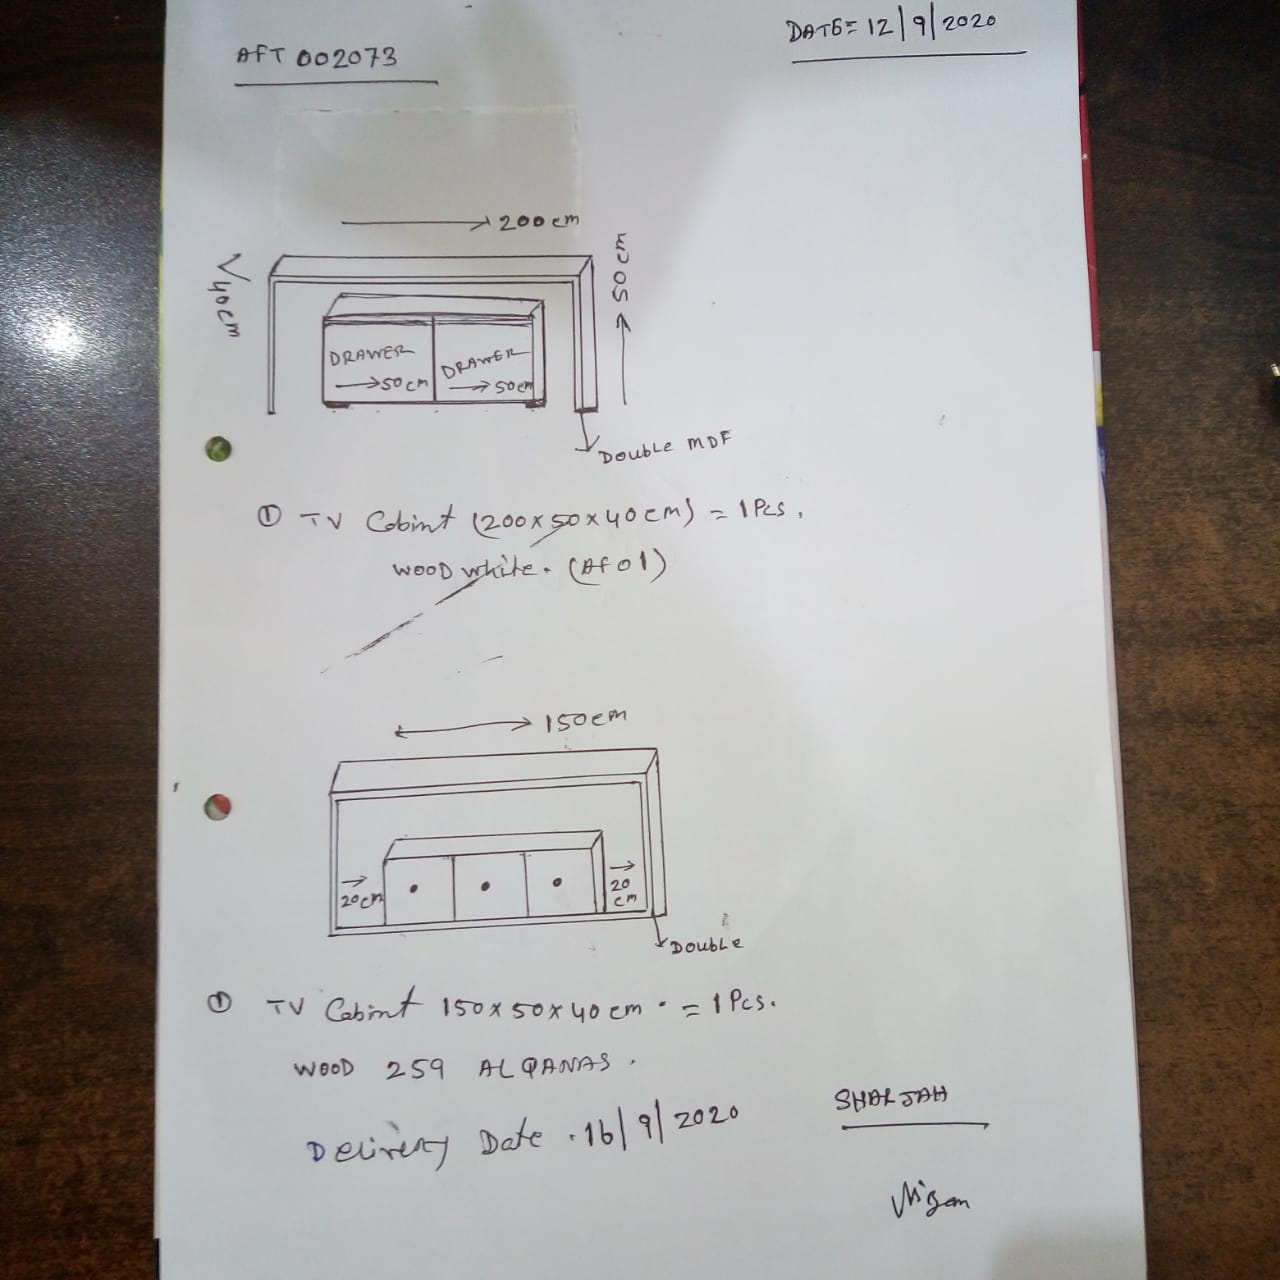 AFT 002073
DATE= 12/9/2020
200cm
50cm
40cm
DRAWER
50cm
DRAWER
50cm
DOUBLE MDF
① TV Cabint (200x50x40cm) = 1Pcs.
WOOD white. (AF01)
150cm
20cm
20
cm
DOUBLE
① TV Cabint 150x50x40cm. = 1Pcs.
WOOD 259 ALQANAS.
Delivery Date . 16/9/2020
SHARJAH